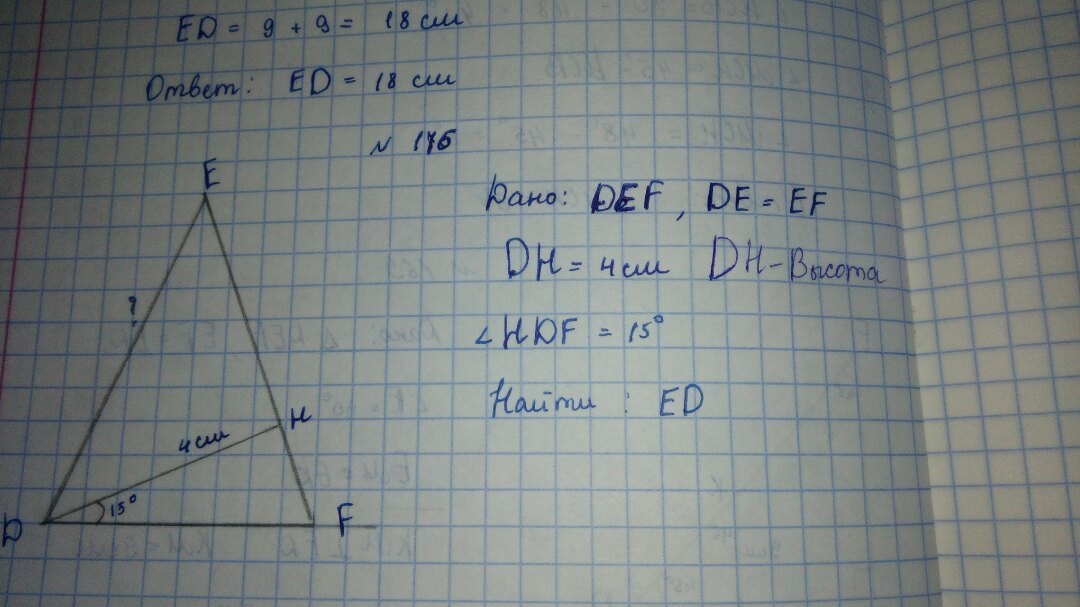 ED = 9 + 9 = 18 см
Ответ: ED = 18 см
N 176
E
Дано: DEF, DE = EF
DH = 4 см DH - Высота
?
∠HDF = 15°
Найти : ED
H
4 см
15°
D
F